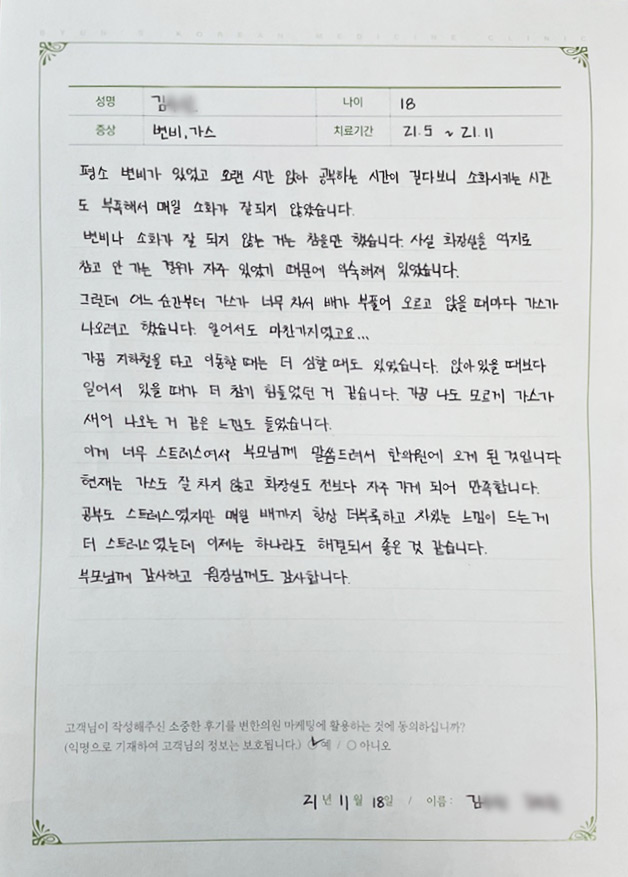 BYUN'S KOREAN MEDICINE CLINIC
성명 김 나이 18
증상 변비, 가스 치료기간 21.5 ~ 21.11
평소 변비가 있었고 오랜 시간 앉아 공부하는 시간이 길다보니 소화시키는 시간
도 부족해서 매일 소화가 잘 되지 않았습니다.
변비나 소화가 잘 되지 않는 거는 참을만 했습니다. 사실 화장실을 억지로
참고 안 가는 경우가 자주 있었기 때문에 익숙해져 있었습니다.
그런데 어느 순간부터 가스가 너무 차서 배가 부풀어 오르고 앉을 때마다 가스가
나오려고 했습니다. 일어서도 마찬가지였고요...
가끔 지하철을 타고 이동할 때는 더 심할 때도 있었습니다. 앉아있을 때보다
일어서 있을 때가 더 참기 힘들었던 거 같습니다. 가끔 나도 모르게 가스가
새어 나오는 거 같은 느낌도 들었습니다.
이게 너무 스트레스여서 부모님께 말씀드려서 한의원에 오게 된 것입니다.
현재는 가스도 잘 차지 않고 화장실도 전보다 자주 가게 되어 만족합니다.
공부도 스트레스였지만 매일 배까지 항상 더부룩하고 차있는 느낌이 드는게
더 스트레스였는데 이제는 하나라도 해결되서 좋은 것 같습니다.
부모님께 감사하고 원장님께도 감사합니다.
고객님이 작성해주신 소중한 후기를 변한의원 마케팅에 활용하는 것에 동의하십니까?
(익명으로 기재하여 고객님의 정보는 보호됩니다.) ✓예 / ○아니오
21년 11월 18일 / 이름 : 김